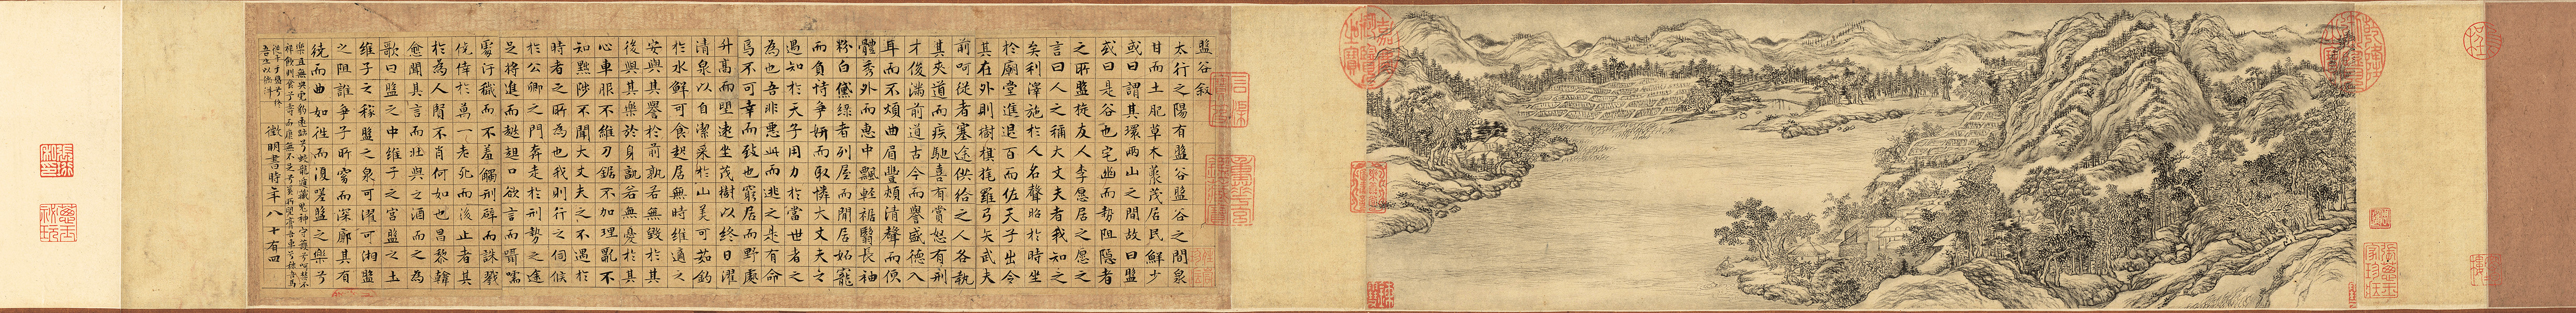 盤谷叙
太行之陽有盤谷盤谷之間泉
甘而土肥草木藂茂居民鮮少
或曰謂其環兩山之間故曰盤
或曰是谷也宅幽而勢阻隱者
之所盤旋友人李愿居之愿之
言曰人之稱大丈夫者我知之
矣利澤施於人名聲昭於時坐
於廟堂進退百而佐天子出令
其在外則樹旗旄羅弓矢武夫
前呵從者塞途供給之人各執
其夾道而疾馳喜有賞怒有刑
才俊滿前道古今而譽盛德入
耳而不煩曲眉豐頰清聲而便
體秀外而惠中飄輕裾翳長袖
粉白黛綠者列屋而閒居妬寵
而負恃爭妍而取憐大丈夫之
遇知於天子用力於當世者之
為也吾非惡此而逃之是有命
焉不可幸而致也窮居而野處
升高而望遠坐茂樹以終日濯
清泉以自潔采於山美可茹釣
於水鮮可食起居無時維適之
安與其譽於前孰若無毀於其
後與其樂於身孰若無憂於其
心車服不維刀鋸不加理亂不
知黜陟不聞大丈夫之不遇於
時者之所為也我則行之伺候
於公卿之門奔走於刑勢之途
足將進而趑趄口欲言而囁嚅
處汙穢而不羞觸刑辟而誅戮
僥倖於萬一老死而後止者其
於為人賢不肖何如也昌黎韓
愈聞其言而壯與之酒而之為
歌曰盤之中維子之宮盤之土
維子之稼盤之泉可濯可湘盤
之阻誰爭子所窈而深廓其有
繞而曲如往而復嗟盤之樂兮
樂且無央虎豹遠跡兮蛟龍遁藏鬼神守護兮呵禁不
祥飲則食兮壽而康無不足兮奚所望膏吾車兮秣吾馬
從子于盤兮終
吾生以徜徉
徵明書時年八十有四